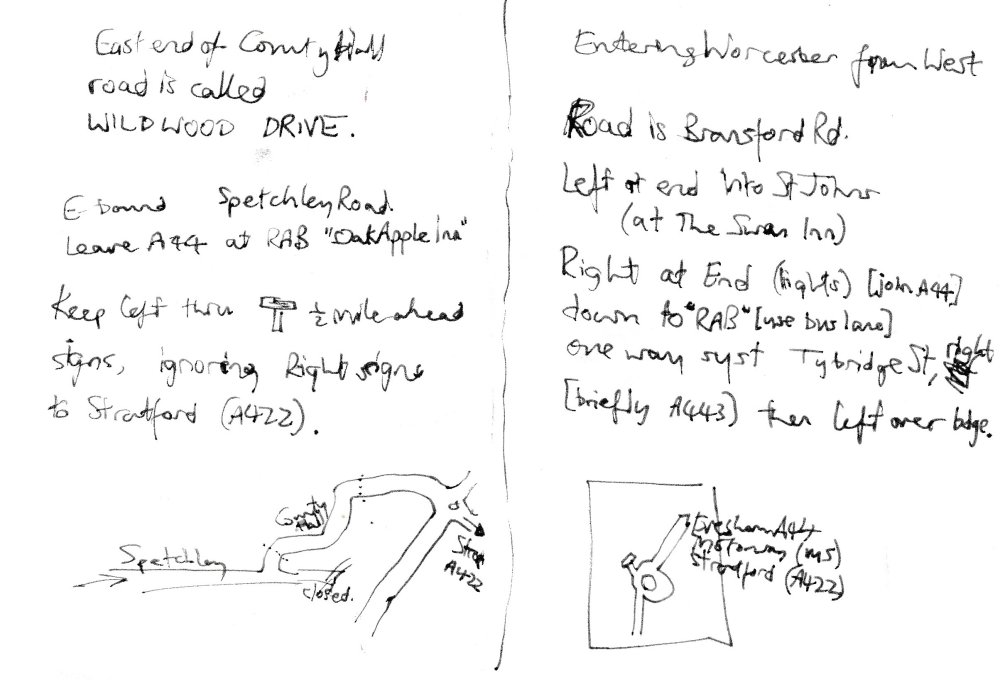 East end of County Hall
road is called
WILDWOOD DRIVE.
E-bound Spetchley Road.
Leave A44 at RAB "Oak Apple Inn"
Keep left thru ½ mile ahead
signs, ignoring Right signs
to Stratford (A422).
County
Hall
Spetchley
closed.
Strat
A422
Entering Worcester from West
Road is Bransford Rd.
Left at end into St Johns
(at The Swan Inn)
Right at End (lights) [john A44]
down to "RAB" [use bus lane]
one way syst Tybridge St, right
[briefly A443) then left over bdge.
Evesham A44
Motorway (M5)
Stratford (A422)